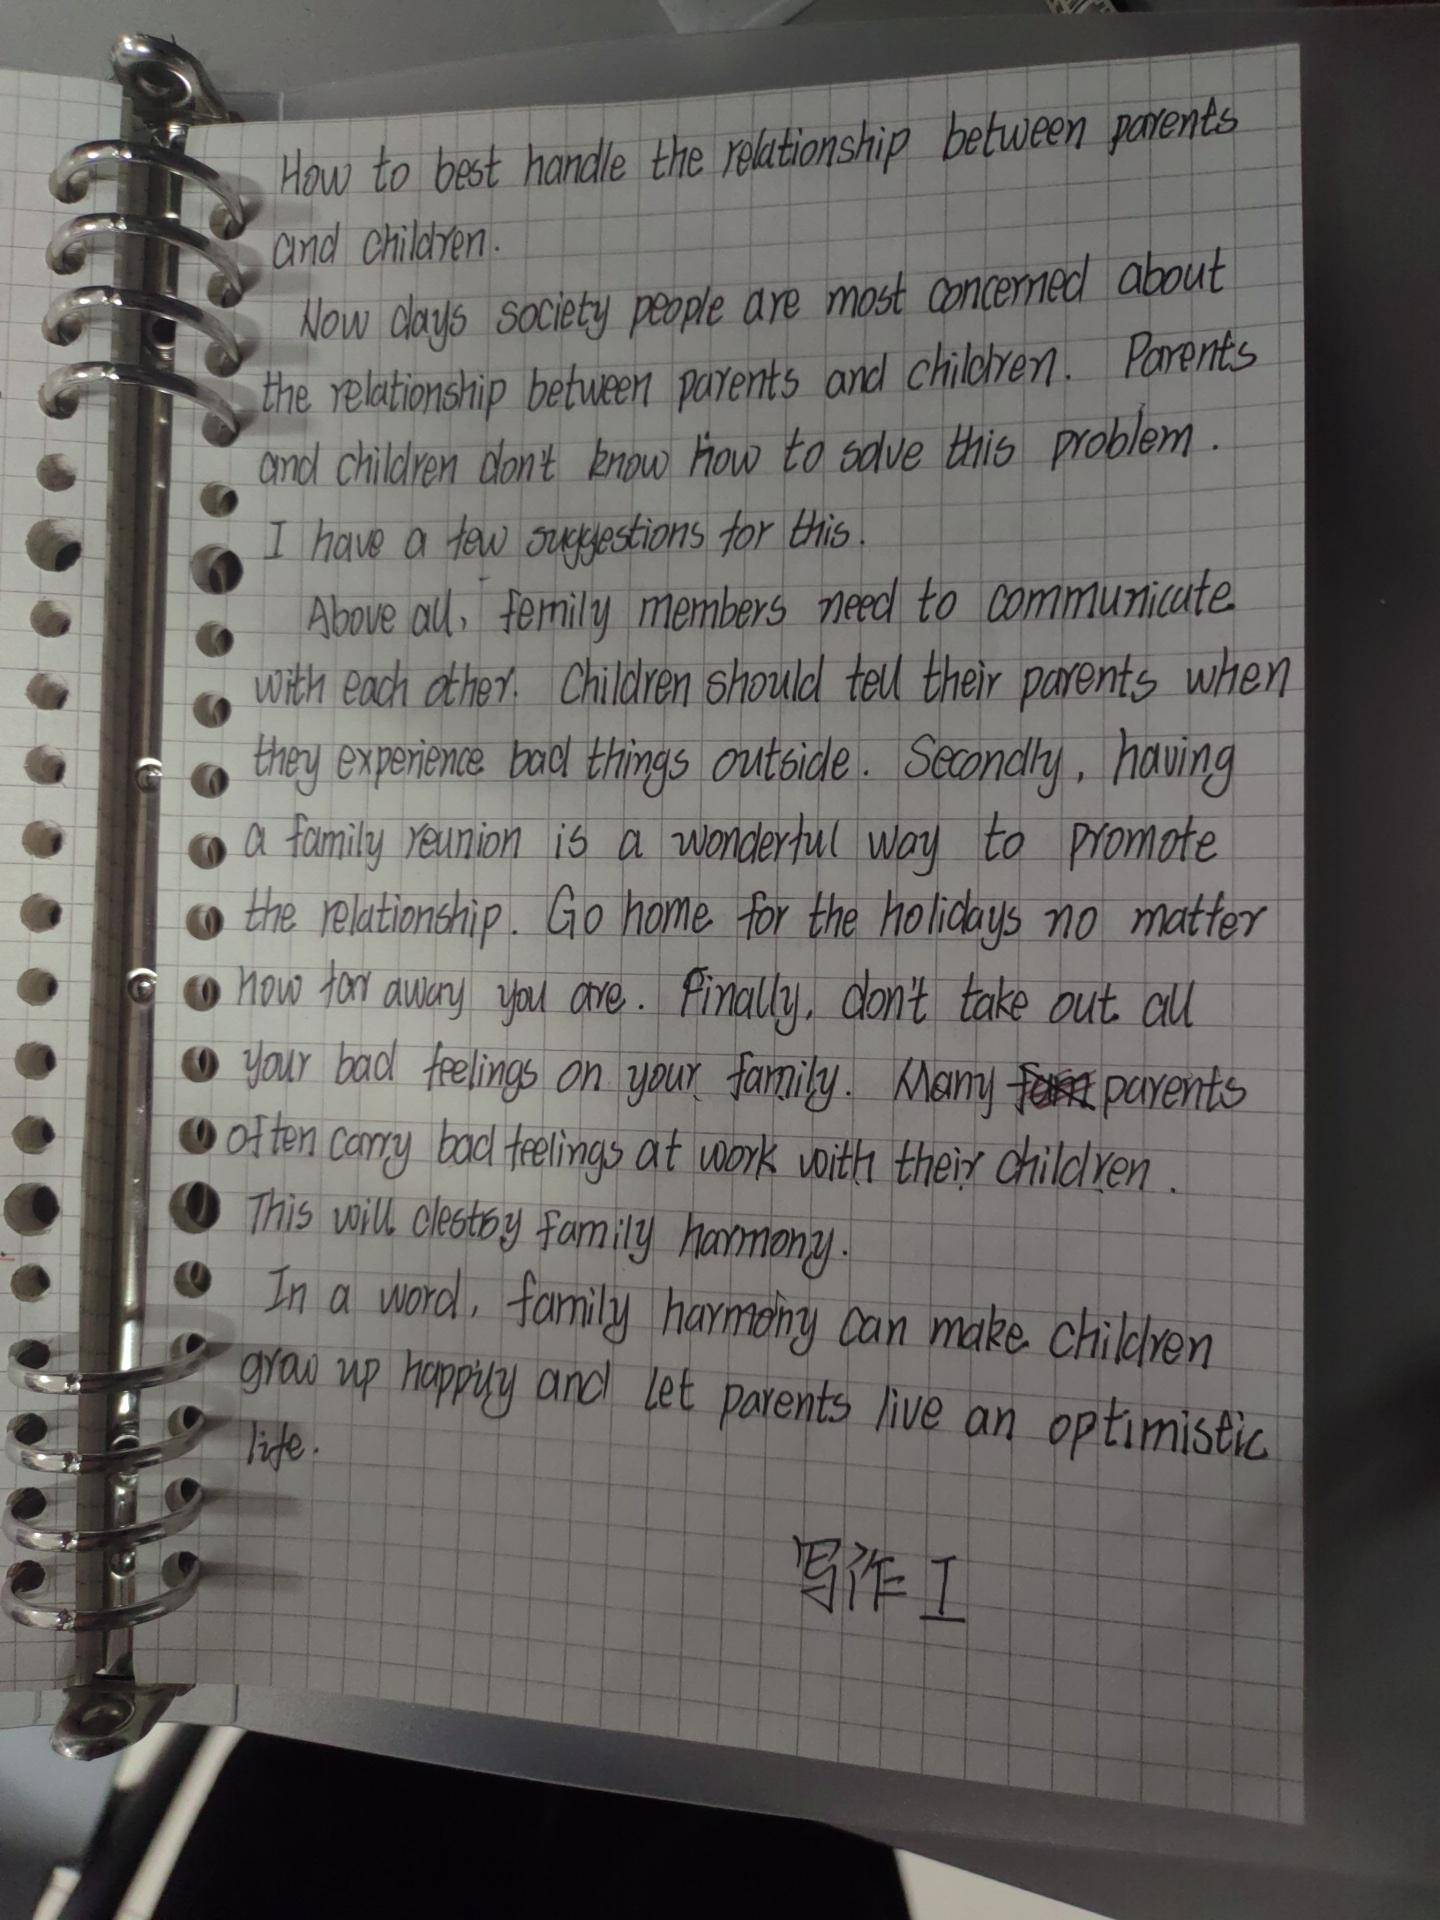 How to best handle the relationship between parents
and children.
Now days society people are most concerned about
the relationship between parents and children. Parents
and children don't know how to solve this problem.
I have a few suggestions for this.
Above all, femily members need to communicate
with each other. Children should tell their parents when
they experience bad things outside. Secondly, having
a family reunion is a wonderful way to promote
the relationship. Go home for the holidays no matter
how far away you are. Finally, don't take out all
your bad feelings on your family. Many parents
often carry bad feelings at work with their children.
This will destroy family harmony.
In a word, family harmony can make children
grow up happily and let parents live an optimistic
life.
写作 I